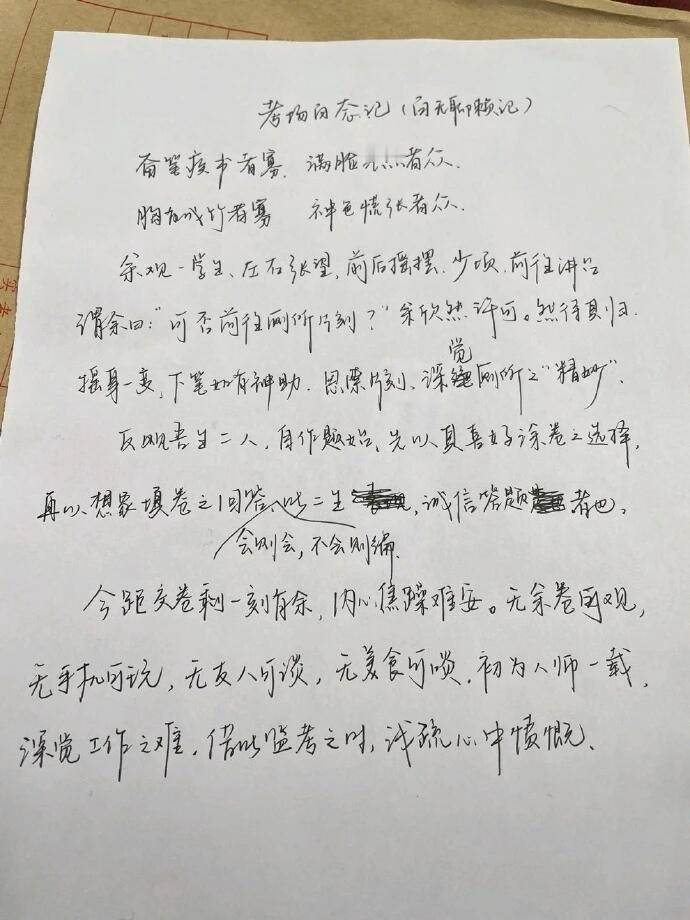 考场百态记（百无聊赖记）
奋笔疾书者寡，满脸……者众.
胸有成竹者寡 神色慌张者众.
余观一学生、左右张望，前后摇摆.少顷.前往讲台
谓余曰："可否前往厕所片刻？"余欣然许可。然待其归.
摇身一变，下笔如有神助.思索片刻、深觉厕所之"精妙".
反观吾生二人，自作题始、先以其喜好涂卷之选择，
再以想象填卷之回答、会则会，不会则编.此二生，诚信答题者也。
今距交卷剩一刻有余，内心焦躁难安。无余卷可观，
无手机可玩，无友人可谈，无美食可啖.初为人师一载，
深觉工作之难，借此监考之时，浅疏心中愤慨.